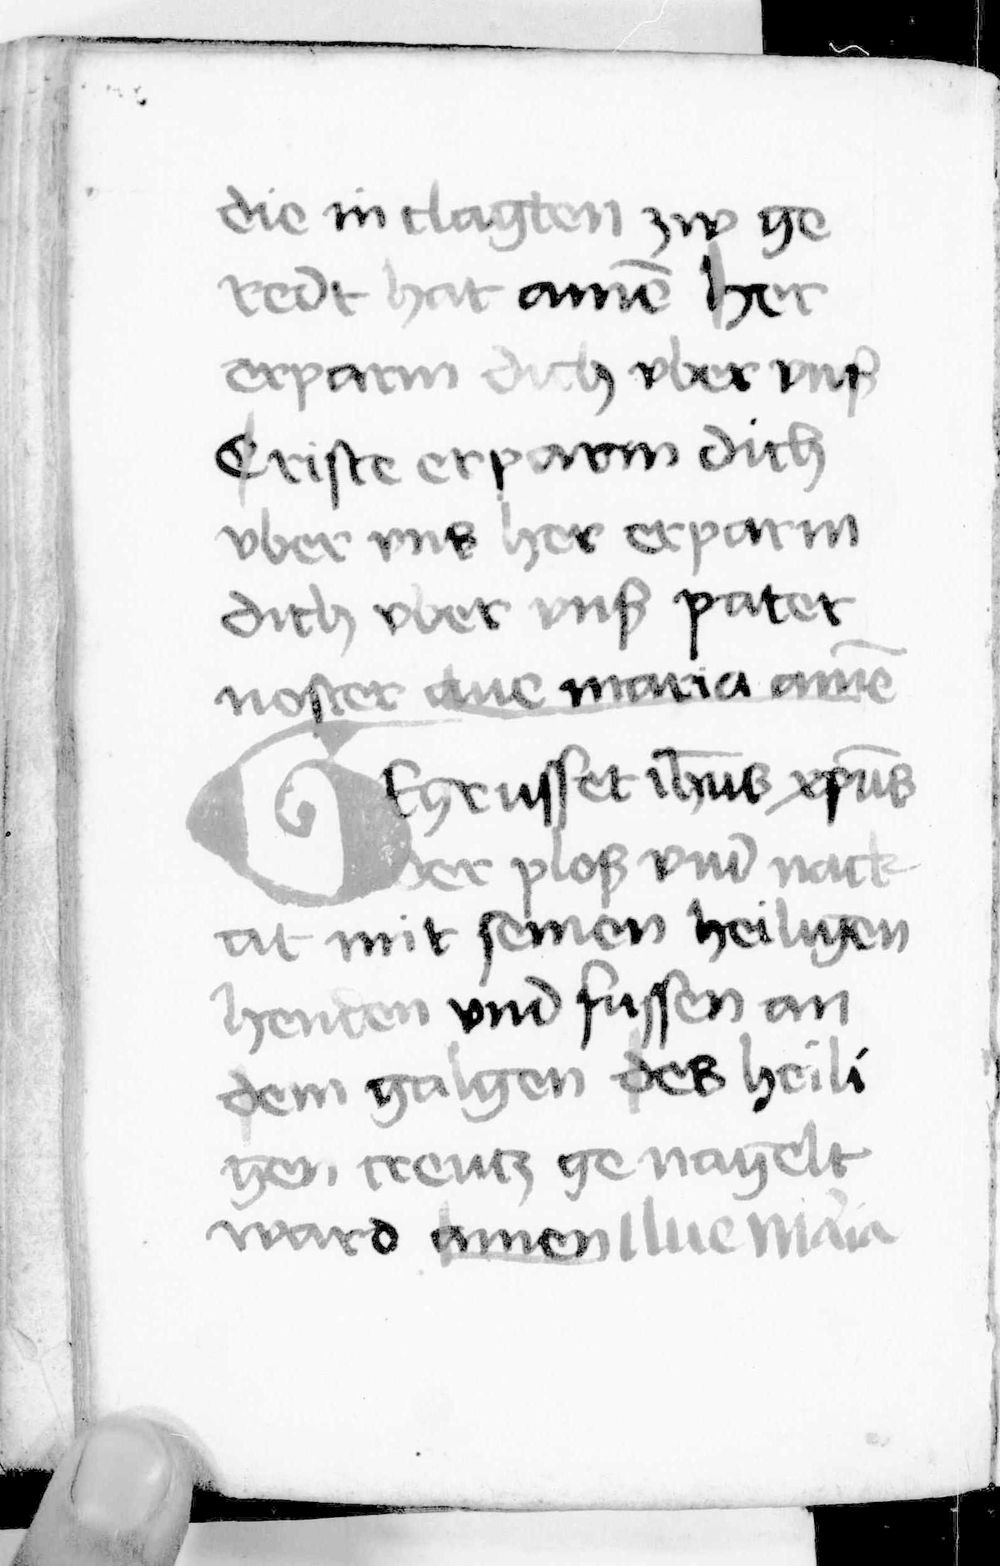 die in clagten zw ge
redt hat amē her
erparm dich vber vnß
Criste erparm dich
vber vns her erparm
dich vber vnß pater
noster aue maria amē
GEgrusset ih̄us xp̄us
der ploß vnd nack
at mit seinen heiligen
henden vnd fussen an
dem galgen des heili
gen creutz ge nagelt
ward amen Aue Maria